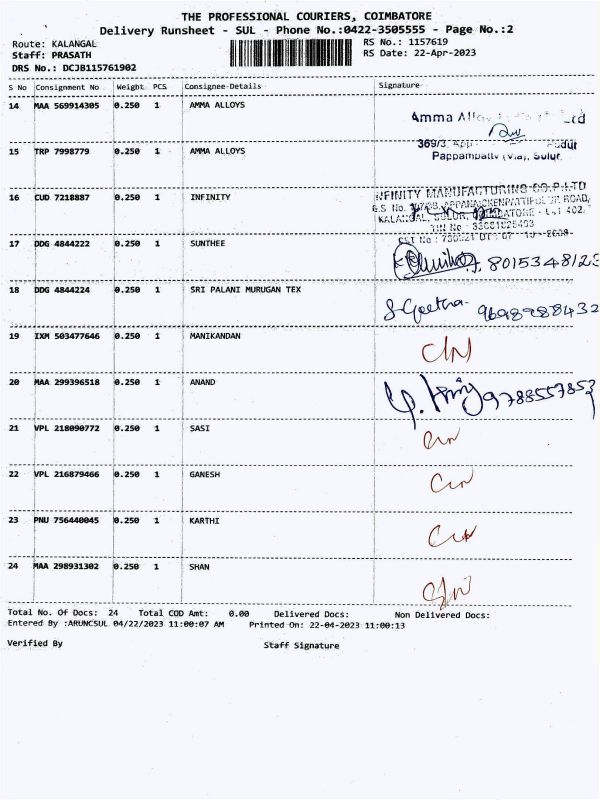 THE PROFESSIONAL COURIERS, COIMBATORE
Delivery Runsheet - SUL - Phone No.:0422-3505555 - Page No.:2
Route: KALANGAL
RS No.: 1157619
Staff: PRASATH
RS Date: 22-Apr-2023
DRS No.: DCJB115761902
S No Consignment No Weight PCS Consignee Details Signature
14 MAA 569914305 0.250 1 AMMA ALLOYS
Amma Ltd
369/3,
15 TRP 7998779 0.250 1 AMMA ALLOYS
Pappampatty (Via), Sulur.
16 CUD 7218887 0.250 1 INFINITY
INFINITY MANUFACTURING CO.P.LTD
G.S No. ROAD,
KALANGAL, SULUR, COIMBATORE - 402.
TIN No
17 DDG 4844222 0.250 1 SUNTHEE
CST No
8015348123
18 DDG 4844224 0.250 1 SRI PALANI MURUGAN TEX
S. Geetha 9698988432
19 IXM 503477646 0.250 1 MANIKANDAN
20 MAA 299396518 0.250 1 ANAND
9788557853
21 VPL 218090772 0.250 1 SASI
22 VPL 216879466 0.250 1 GANESH
23 PNU 756440045 0.250 1 KARTHI
24 MAA 298931302 0.250 1 SHAN
Total No. Of Docs: 24 Total COD Amt: 0.00 Delivered Docs: Non Delivered Docs:
Entered By :ARUNCSUL 04/22/2023 11:00:07 AM Printed On: 22-04-2023 11:00:13
Verified By Staff Signature